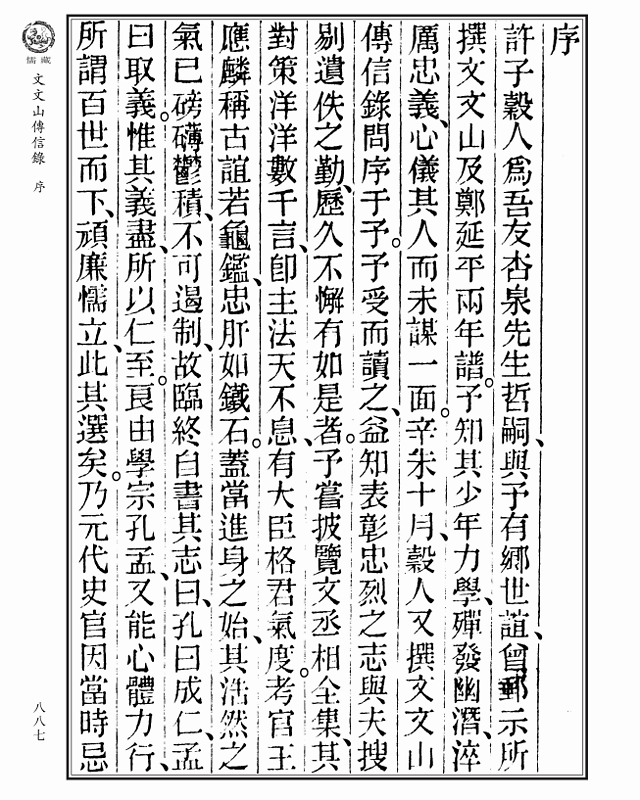 序
許子穀人爲吾友杏泉先生哲嗣、與予有鄉世誼、曾郵示所
撰文文山及鄭延平兩年譜。予知其少年力學、殫發幽潛、淬
厲忠義、心儀其人而未謀一面。辛未十月、穀人又撰文文山
傳信錄問序于予。予受而讀之、益知表彰忠烈之志與夫搜
剔遺佚之勤、歷久不懈有如是者。予嘗披覽文丞相全集、其
對策洋洋數千言、卽主法天不息、有大臣格君氣度。考官王
應麟稱古誼若龜鑑、忠肝如鐵石。蓋當進身之始、其浩然之
氣已磅礴鬱積、不可遏制、故臨終自書其志曰、孔曰成仁、孟
曰取義。惟其義盡、所以仁至。良由學宗孔孟、又能心體力行、
所謂百世而下、頑廉懦立、此其選矣。乃元代史官因當時忌
儒藏
文文山傳信錄 序
八八七